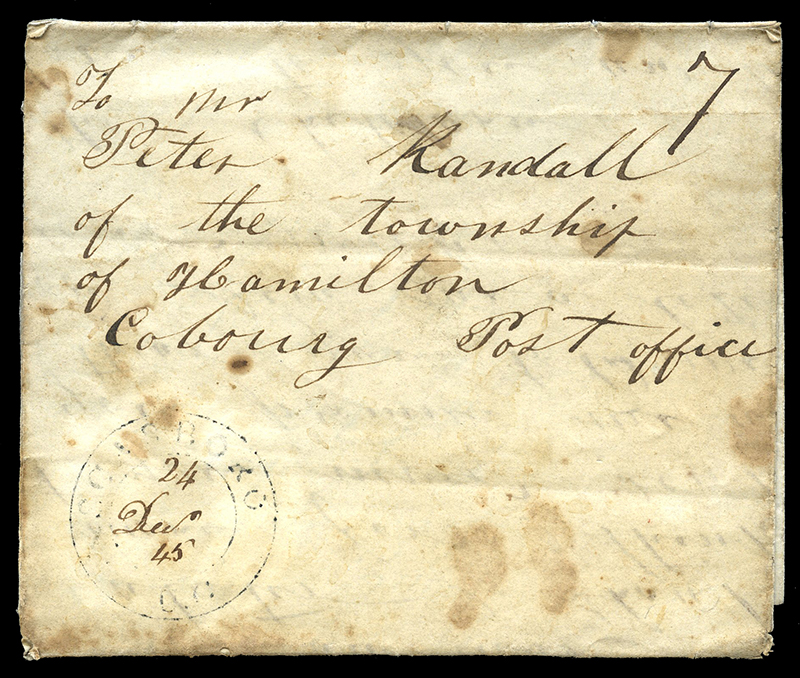 7
To mr
Peter Randall
of the township
of Hamilton
Cobourg Post office
24
Decr
45